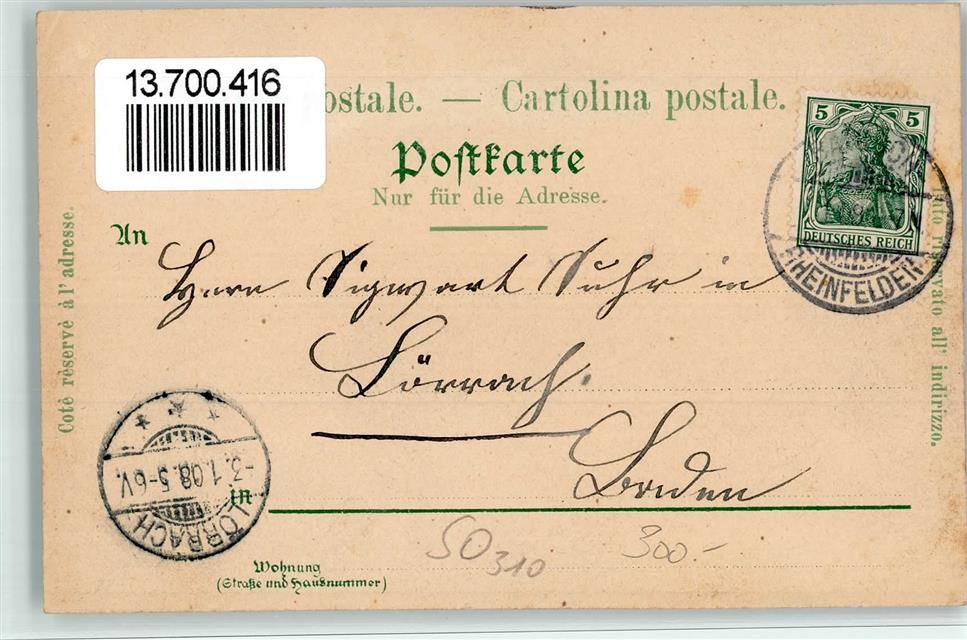 13.700.416
ostale. — Cartolina postale.
Postkarte
Nur für die Adresse.
An
Herrn Sigwart Suhr in
Lörrach.
Baden
in
Wohnung
(Straße und Hausnummer)
SO 310
300.-
Coté réservé à l'adresse.
riservato all' indirizzo.
5 5
DEUTSCHES REICH
RHEINFELDEN
-3.1.08.5-6V.
LÖRRACH